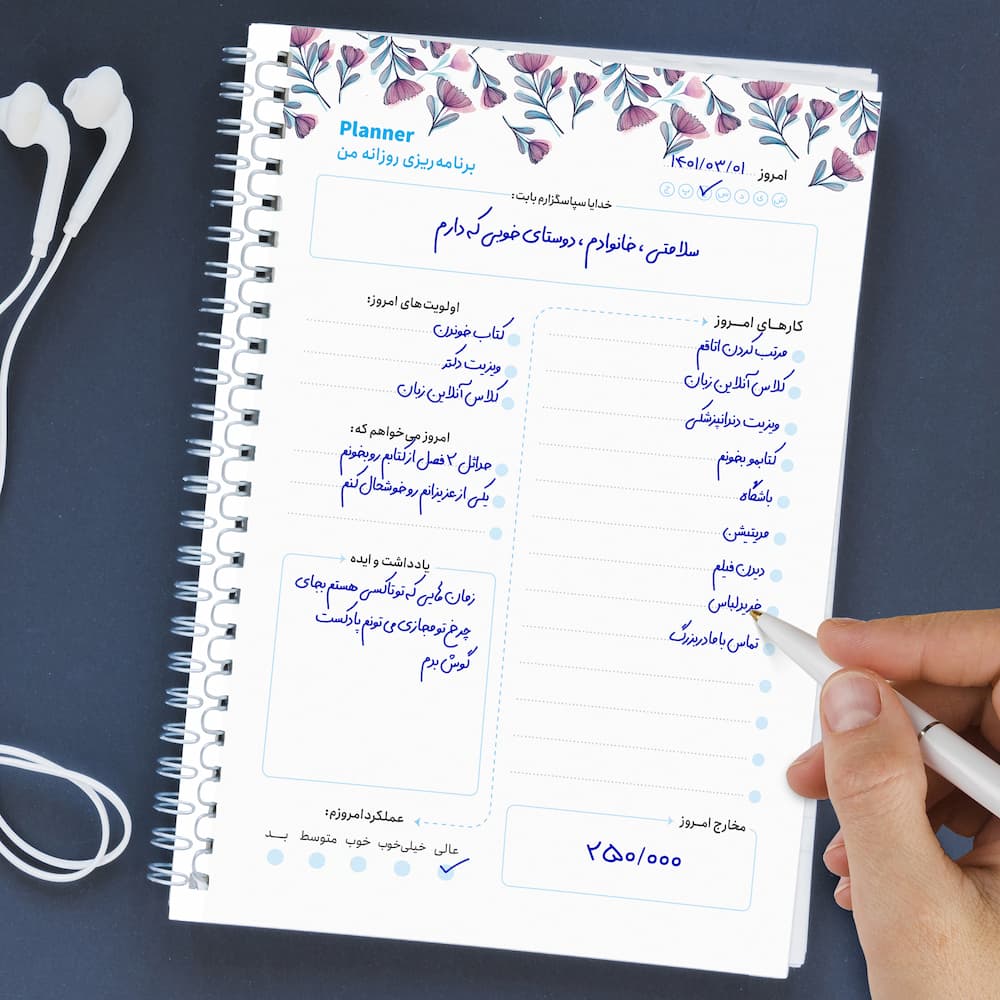 Planner
برنامه‌ریزی روزانه من
امروز ۱۴۰۱/۰۳/۰۱
ش ی د س چ پ ج
خدایا سپاسگزارم بابت:
سلامتی ، خانوادم ، دوستای خوبی که دارم
کارهای امروز
مرتب کردن اتاقم
کلاس آنلاین زبان
ویزیت دندانپزشکی
کتابمو بخونم
باشگاه
مدیتیشن
دیدن فیلم
خرید لباس
تماس با مادربزرگ
اولویت‌های امروز:
کتاب خوندن
ویزیت دکتر
کلاس آنلاین زبان
امروز می‌خواهم که:
حداقل ۲ فصل از کتابم رو بخونم
یکی از عزیزانم رو خوشحال کنم
یادداشت و ایده
زمان هایی که تو تاکسی هستم بجای
چرخ تو مجازی می تونم پادکست
گوش بدم
عملکرد امروزم:
عالی خیلی‌خوب خوب متوسط بد
مخارج امروز
۲۵۰/۰۰۰